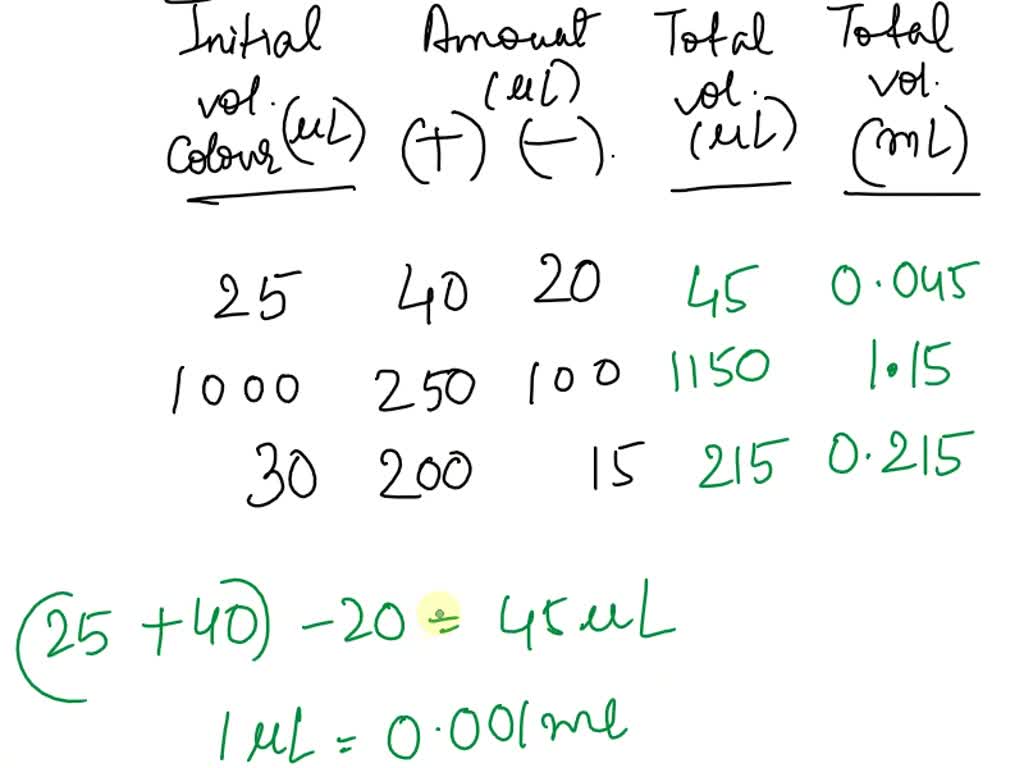 Initial Amount Total Total
vol. (μL) vol. vol.
Colour (μL) (+) (-). (μL) (mL)
25 40 20 45 0.045
1000 250 100 1150 1.15
30 200 15 215 0.215
(25 + 40) - 20 = 45 μL
1 μL = 0.001 ml